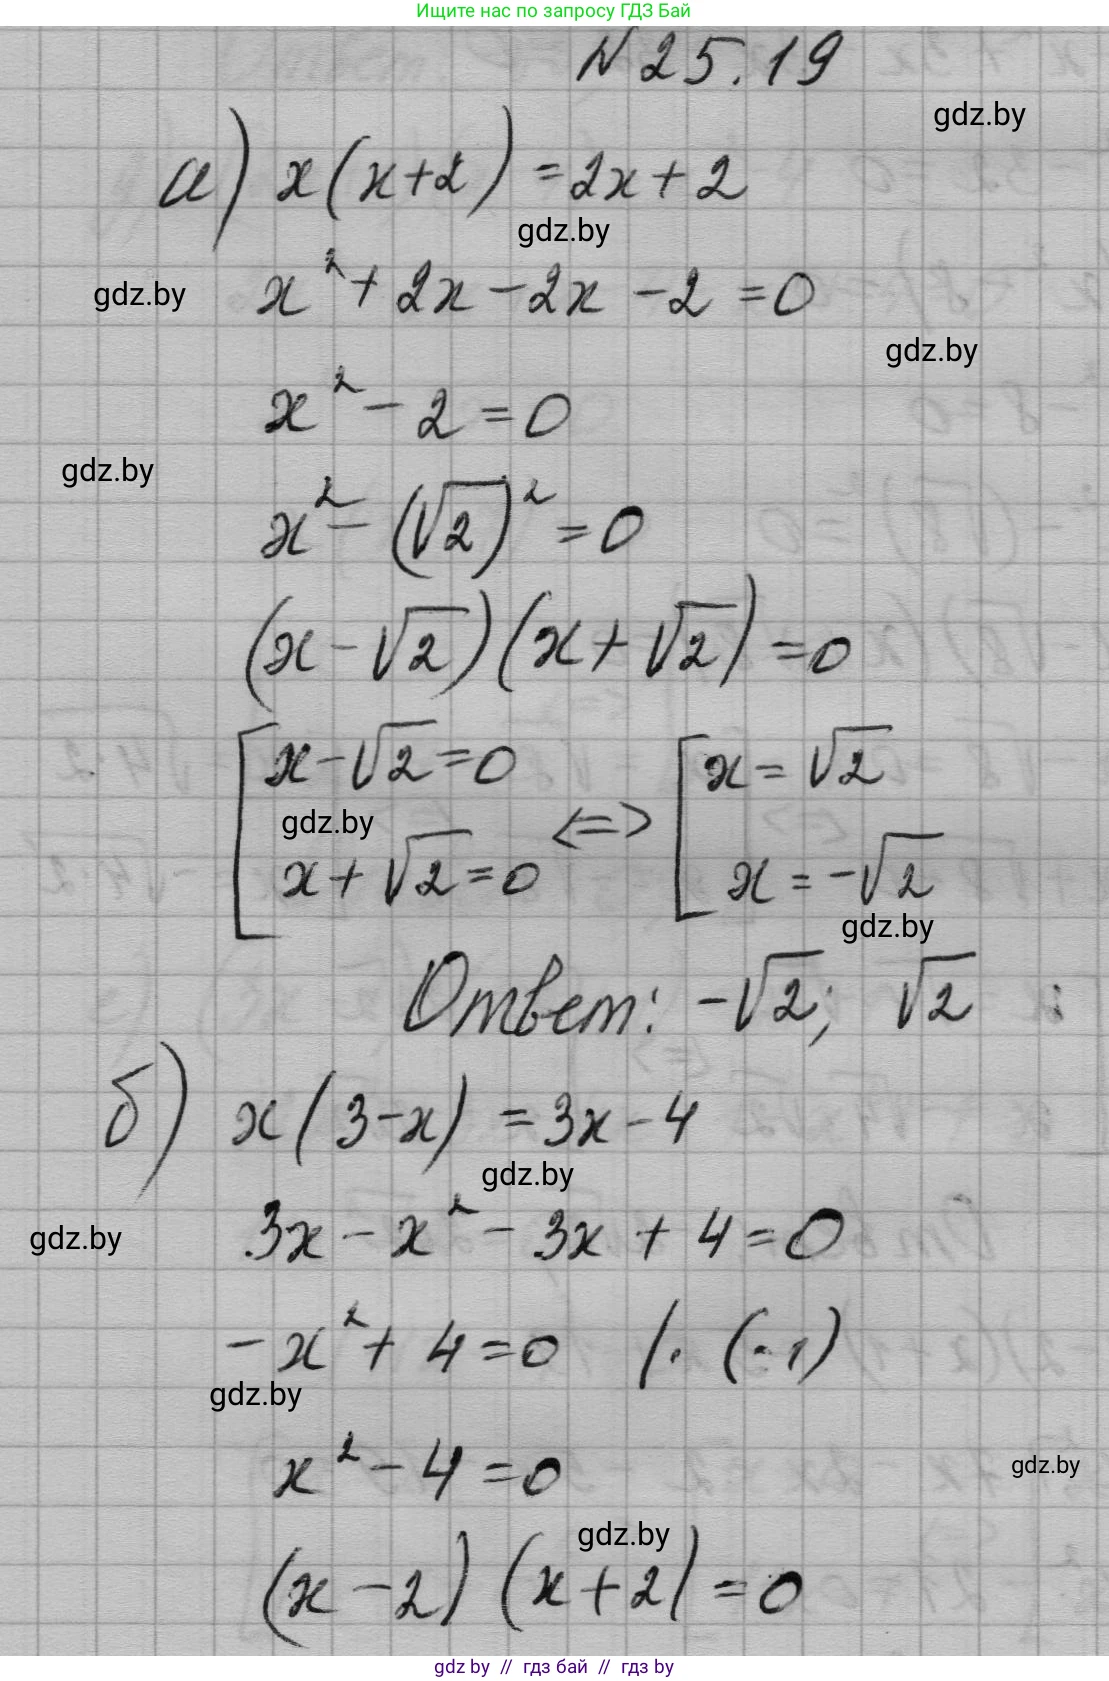 Ищите нас по запросу ГДЗ Бай
N 25.19
gdz.by
а) x(x+2) = 2x + 2
gdz.by
gdz.by
x² + 2x - 2x - 2 = 0
gdz.by
x² - 2 = 0
gdz.by
x² - (√2)² = 0
(x - √2)(x + √2) = 0
[ x - √2 = 0 <=> [ x = √2
gdz.by
x + √2 = 0 x = -√2
gdz.by
Ответ: -√2; √2
б) x(3-x) = 3x - 4
gdz.by
3x - x² - 3x + 4 = 0
gdz.by
-x² + 4 = 0 /· (-1)
gdz.by
x² - 4 = 0
gdz.by
gdz.by
(x - 2)(x + 2) = 0
gdz by // гдз бай // гдз by